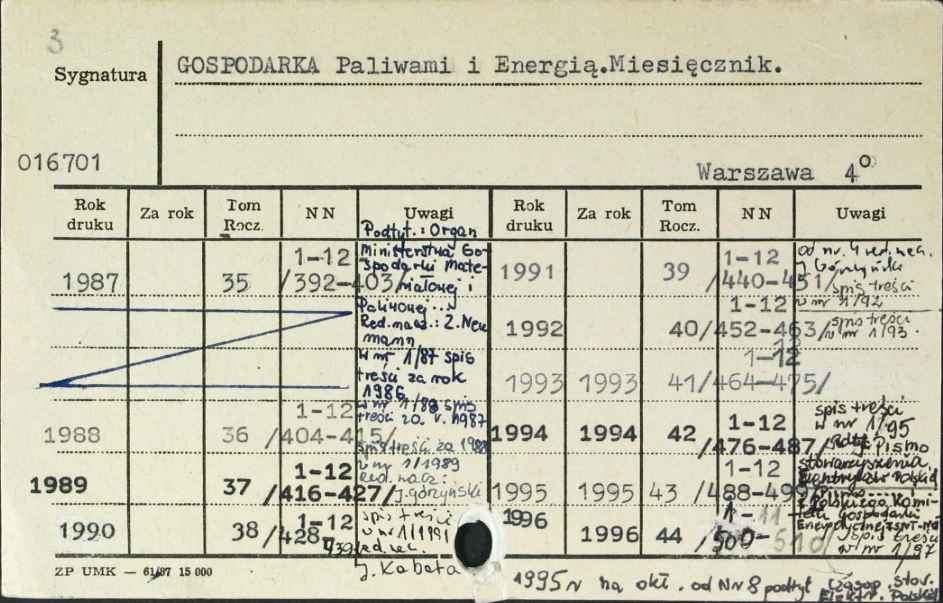 3
Sygnatura
GOSPODARKA Paliwami i Energią.Miesięcznik.
016701
Warszawa 4°
Rok druku Za rok Tom Rocz. NN Uwagi Rok druku Za rok Tom Rocz. NN Uwagi
Podtyt.: Organ
Ministerstwa Go-
spodarki Mate-
riałowej i
Paliwowej...
Red.nacz.: Z.Neu
mann
w nr 1/87 spis
treści za rok
1986
1987 35 1-12
/392-403/
w nr 1/88 spis
treści za r. 1987
1988 36 1-12
/404-415/
spis treści za 1988
w nr 1/1989
Red. nacz.:
J.Górzyński
1989 37 1-12
/416-427/
spis treści
w nr 1/1991
red.
J. Kabata
1990 38 1-12
/428-
439
od nr. 4 red. nacz.
J Górzyński
spis treści
w nr 1/92
1991 39 1-12
/440-451/
1992 40 1-12
/452-463/
spis treści
w nr 1/93.
1993 1993 41 1-12
/464-475/
1994 1994 42 1-12
/476-487/
spis treści
w nr 1/95
Podtyt Pismo
Stowarzyszenia
1995 1995 43 1-12
/488-499/
Pismo...
Polskiego Komi-
tetu Gospodarki
Energetycznej
1996 1996 44 1-11
/500-510/
spis treści
w nr 1/97
ZP UMK — 61/87 15 000
1995 r na okł. od Nr 8 podtyt Czasop. Stow.
Elektr. Polskich